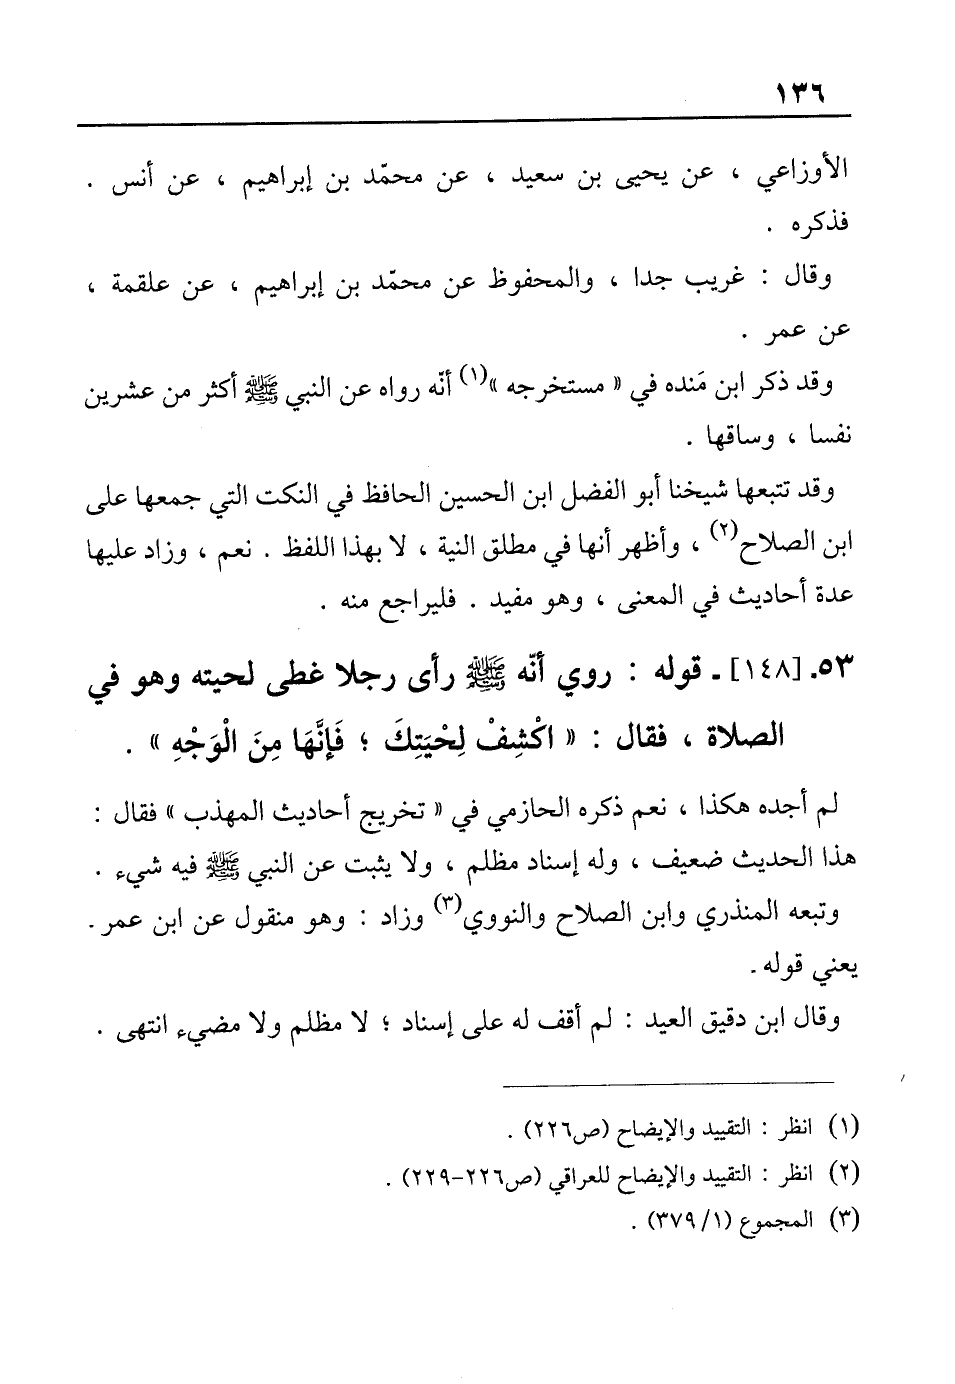 ١٣٦
الأوزاعي ، عن يحيى بن سعيد ، عن محمّد بن إبراهيم ، عن أنس .
فذكره .
وقال : غريب جدا ، والمحفوظ عن محمّد بن إبراهيم ، عن علقمة ،
عن عمر .
وقد ذكر ابن مَنده في « مستخرجه »(١) أنّه رواه عن النبي ﷺ أكثر من عشرين
نفسا ، وساقها .
وقد تتبعها شيخنا أبو الفضل ابن الحسين الحافظ في النكت التي جمعها على
ابن الصلاح(٢) ، وأظهر أنها في مطلق النية ، لا بهذا اللفظ . نعم ، وزاد عليها
عدة أحاديث في المعنى ، وهو مفيد . فليراجع منه .
٥٣. [١٤٨] ـ قوله : روي أنّه ﷺ رأى رجلا غطى لحيته وهو في
الصلاة ، فقال : « اكْشِفْ لِحْيَتِكَ ؛ فَإِنَّهَا مِنَ الْوَجْهِ » .
لم أجده هكذا ، نعم ذكره الحازمي في « تخريج أحاديث المهذب » فقال :
هذا الحديث ضعيف ، وله إسناد مظلم ، ولا يثبت عن النبي ﷺ فيه شيء .
وتبعه المنذري وابن الصلاح والنووي(٣) وزاد : وهو منقول عن ابن عمر .
يعني قوله .
وقال ابن دقيق العيد : لم أقف له على إسناد ؛ لا مظلم ولا مضيء انتهى .
(١) انظر : التقييد والإيضاح (ص٢٢٦) .
(٢) انظر : التقييد والإيضاح للعراقي (ص٢٢٦-٢٢٩) .
(٣) المجموع (١/ ٣٧٩) .